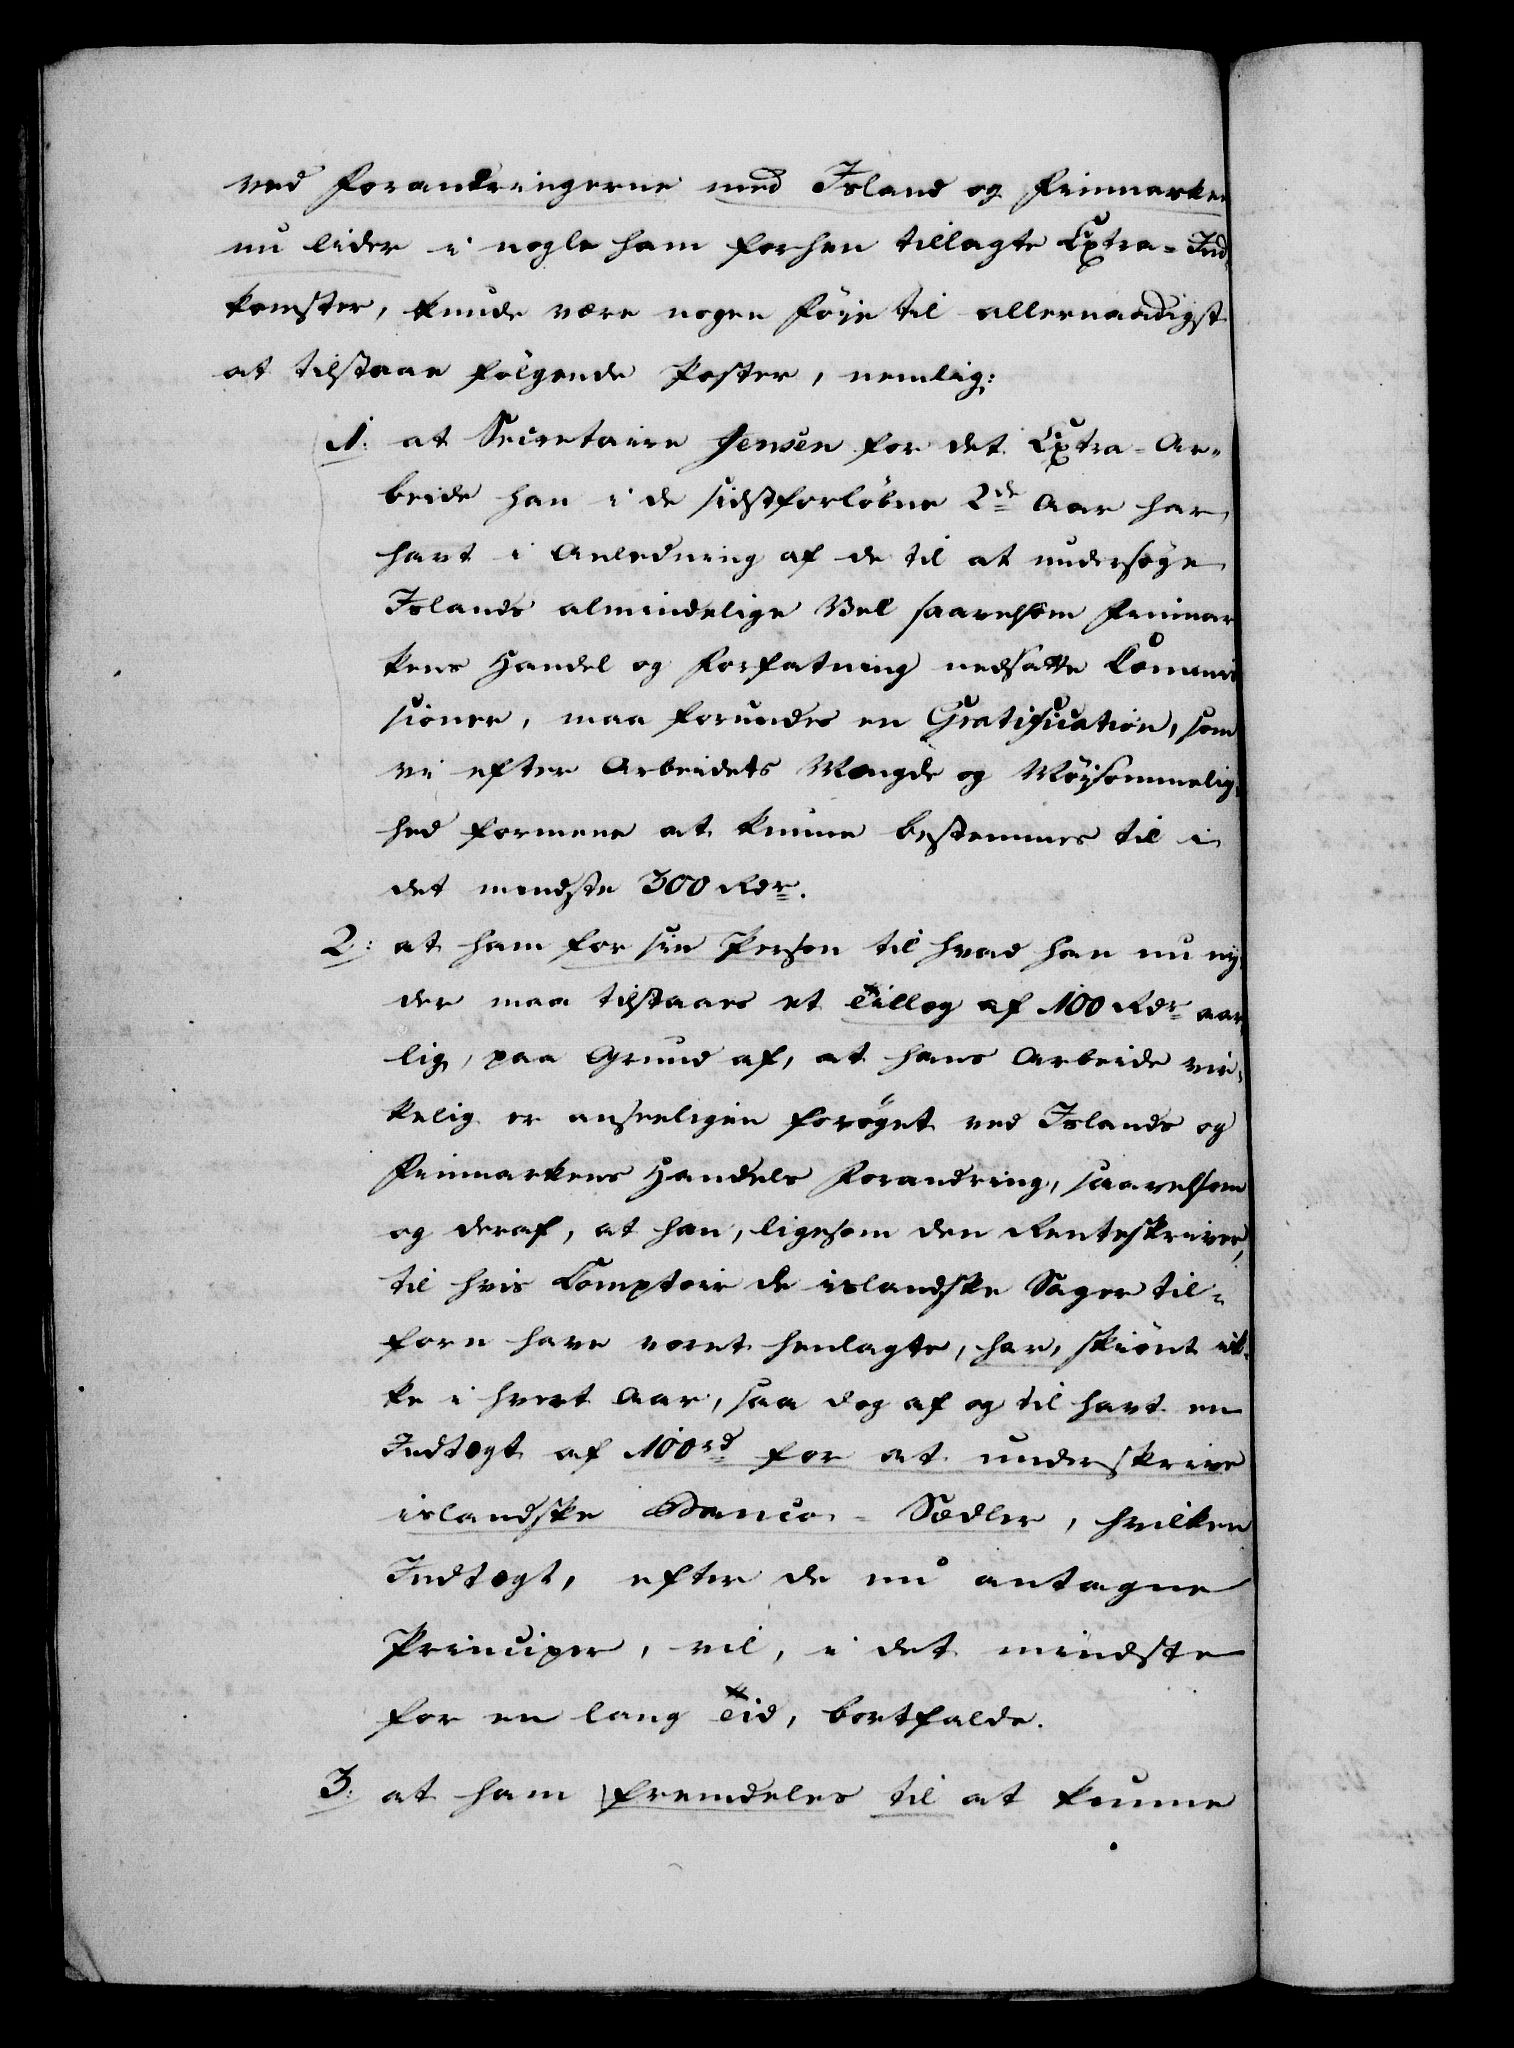 ved Forandringerne med Island og Finmarken
nu lider i nogle ham forhen tillagte Extra-Ind-
komster, kunde være nogen Föie til allernaadigst
at tilstaae fölgende Poster, nemlig:
1. at Secretaire Jensen for det Extra-Ar-
beide han i de sidstforløbne 2de Aar har
havt i Anledning af de til at undersöge
Islands almindelige Vel saavelsom Finmar
kens Handel og Forfatning nedsatte Commis
sioner, maa forundes en Gratification, som
vi efter Arbeidets Mængde og Möisommelig-
hed formene at kunne bestemmes til i
det mindste 300 Rdr.
2: at ham for sin Person til hvad han nu ny-
der maa tilstaaes et Tillæg af 100 Rdr aar
lig, paa Grund af, at hans Arbeide vir-
kelig er anseeligen foröget ved Islands og
Finmarkens Handels Forandring, saavelsom
og deraf, at han, ligesom den Renteskriver,
til hvis Comptoir de islandske Sager til-
forn have været henlagte, har, skiönt ik-
ke i hvert Aar, saa dog af og til havt en
Indtægt af 100rd for at underskrive
islandske Banco-Sædler, hvilken
Indtægt, efter de nu antagne
Principer, vil, i det mindste
for en lang Tid, bortfalde.
3. at ham fremdeles til at kunne